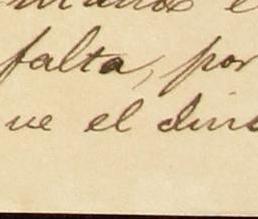 falta, por
ue el dine